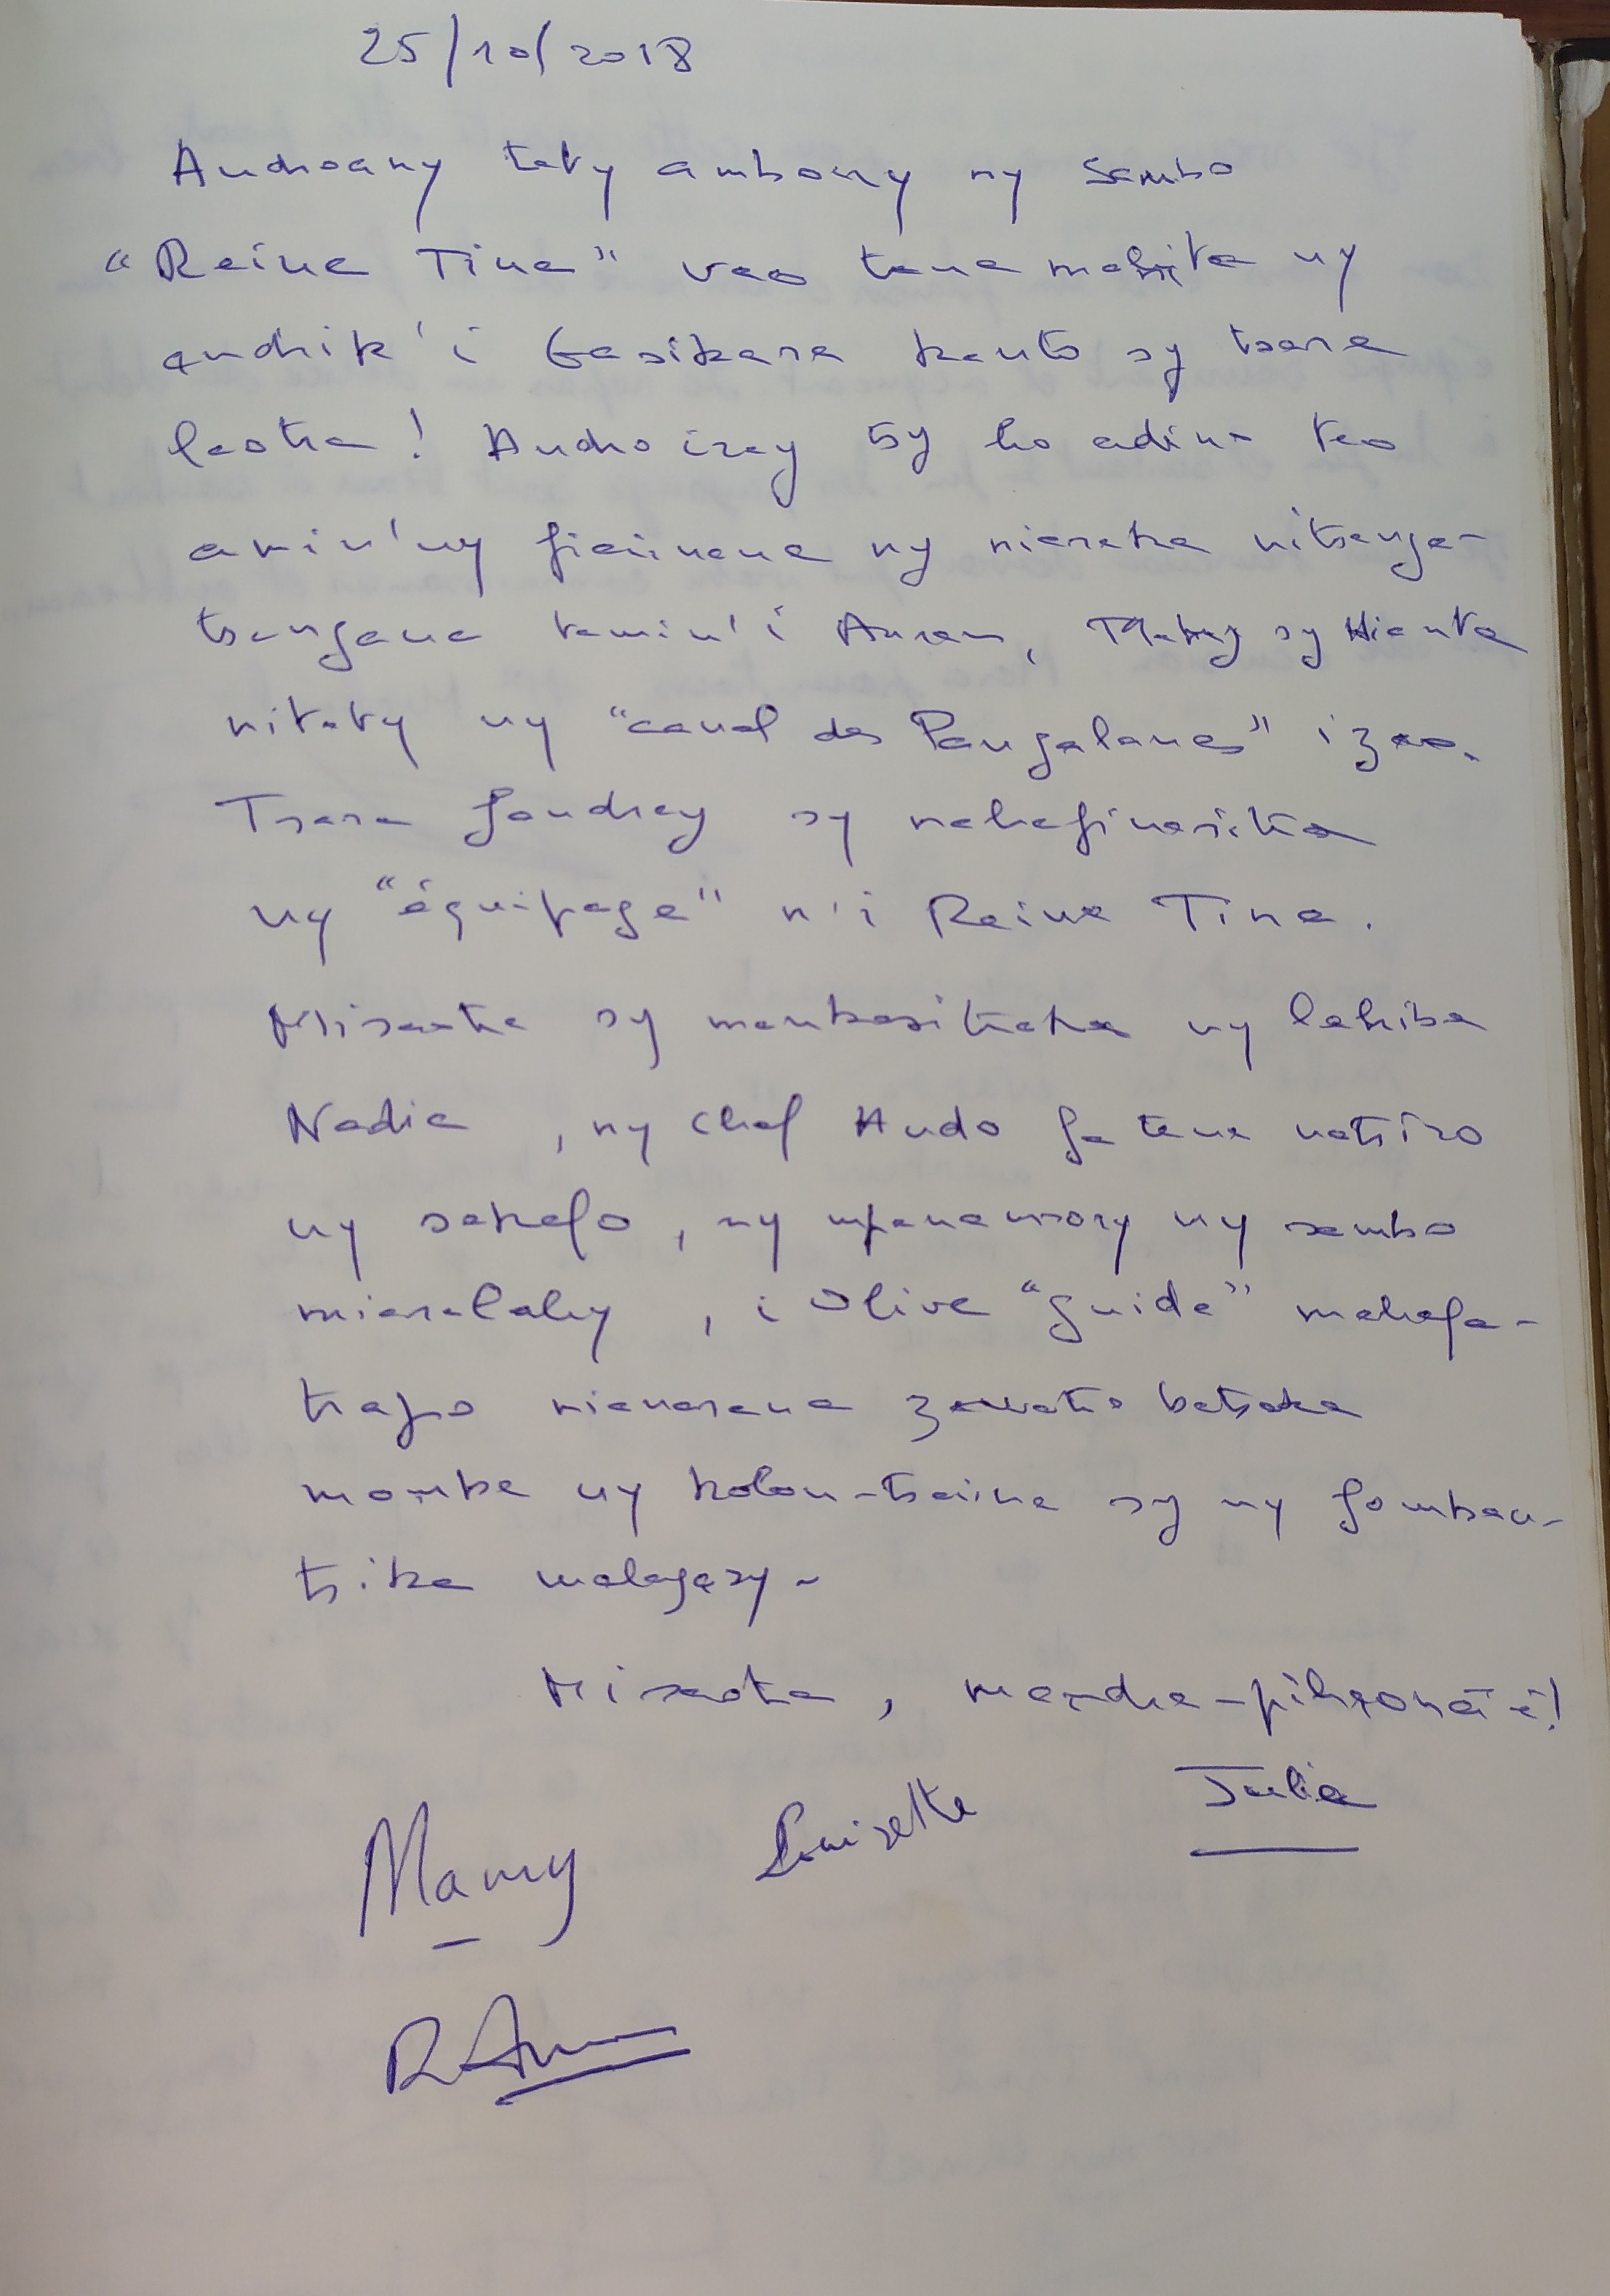 25/10/2018
Androany taty ambony ny sambo
"Reine Tina" vao tena mahita ny
endrik'i Gasikara kanto sy tsara
laotra! Andro iray tsy ho adino teo
amin'ny fiainana ny niaraka nitsanga-
tsangana tamin'i Anran, sy Hianta
nitety ny "canal des Pangalanes" izao.
Tsara fandray sy mahafinaritra
ny "équipage" n'i Reine Tina.
Misaotra sy mankasitraka ny
Nadia, ny chef Hudo fa tena natsiro
ny sakafo, ny mpanamory ny sambo
miaralahy, i Olive "guide" mahafa-
trapo nianarana zavatra betsaka
momba ny kolon-tsaina sy ny fomban-
tsika malagasy -
Misaotra, mandra-pihaona é!
Julia
Mamy Louisette